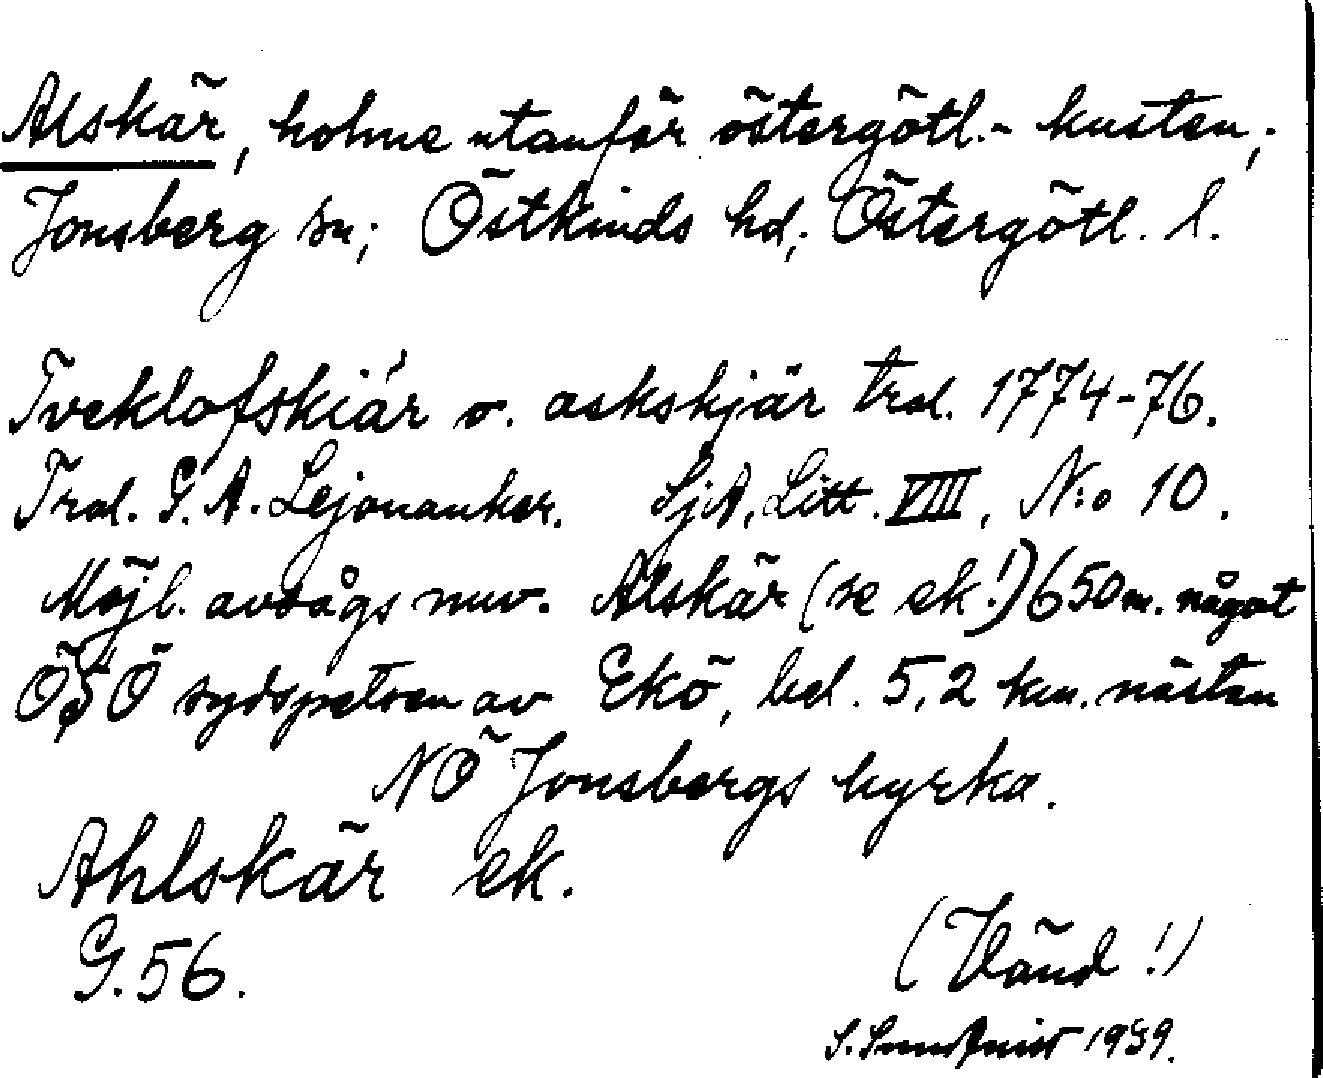 Alskär, holme utanför östergötl.- kusten;
Jonsberg sn; Östkinds hd; Östergötl. l.
Tveklofskiär o. askskjär trol. 1774-76.
Trol. G. A. Lejonanker. SjA, Litt. VIII, N:o 10.
Möjl. avsågs nuv. Alskär (se ek!) 650 m. något
ÖSÖ sydspetsen av Ekö, bel. 5,2 km. nästan
NÖ Jonsbergs kyrka.
Ahlskär ek.
G. 56.
(Vänd!)
S. 1939.